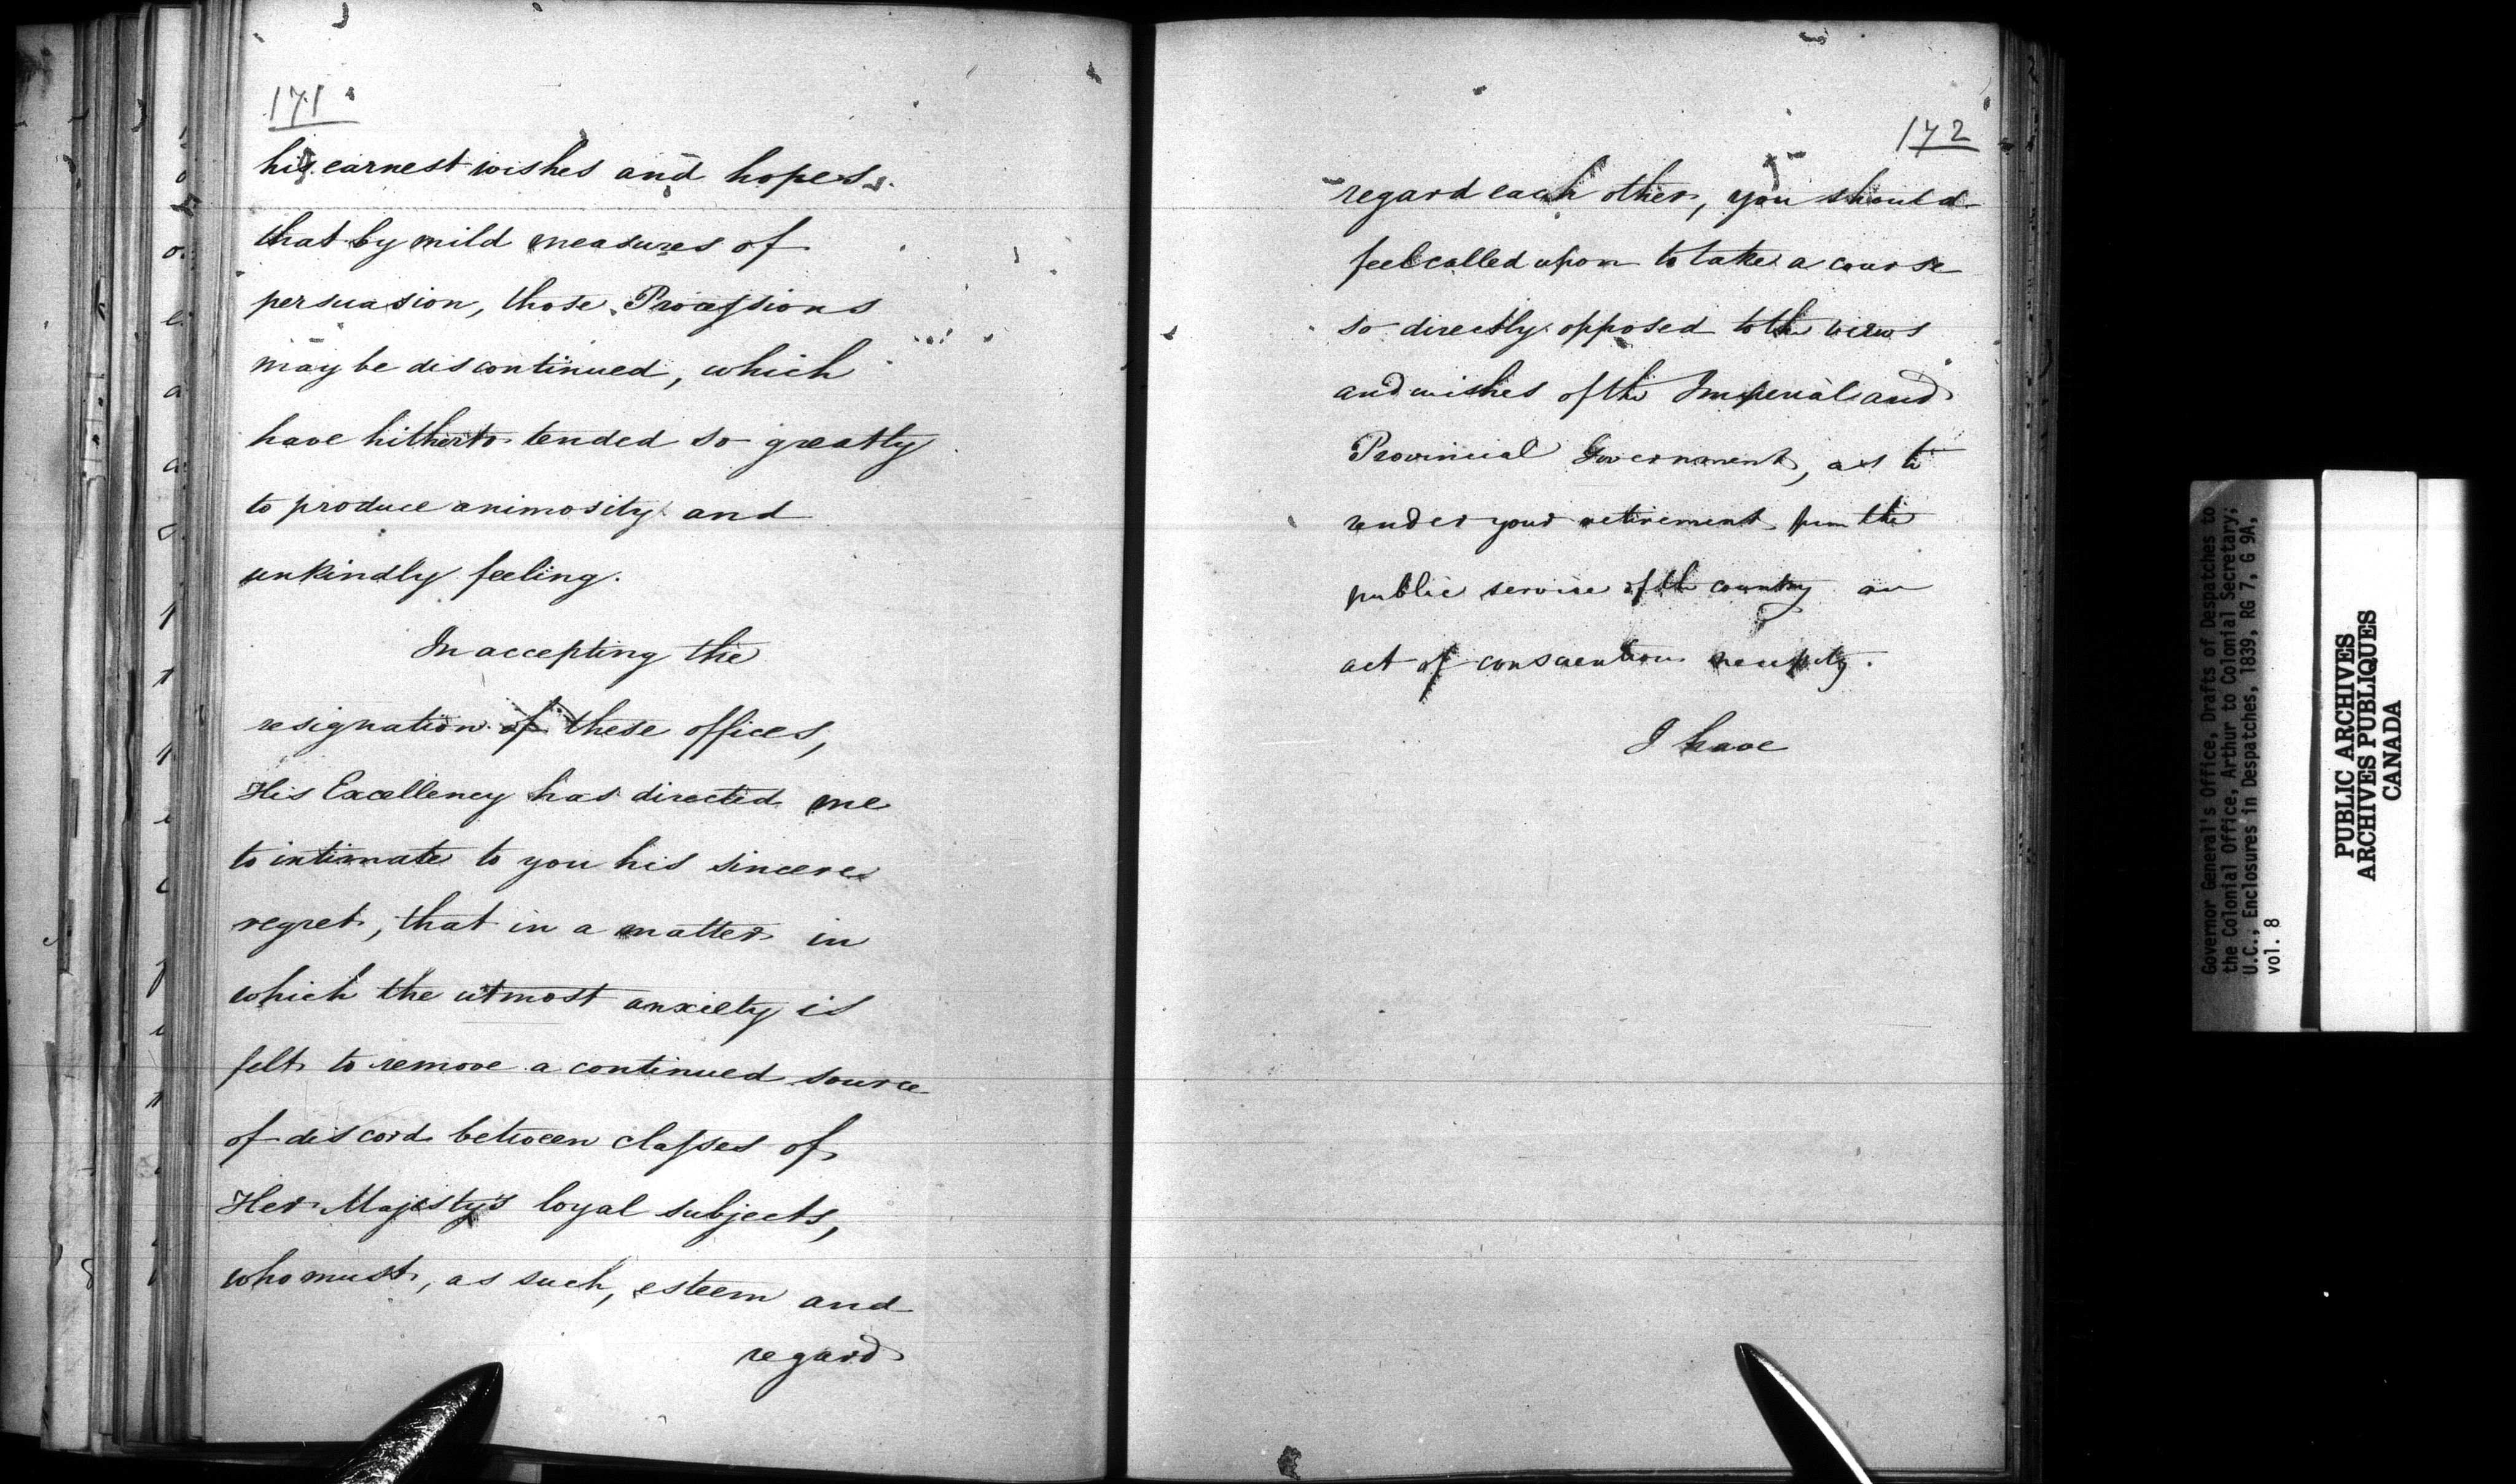 171
his earnest wishes and hopes
that by mild measures of
persuasion, those Processions
may be discontinued, which
have hitherto tended so greatly
to produce animosity and
unkindly feeling.
In accepting the
resignation of these offices,
His Excellency has directed me
to intimate to you his sincere
regret, that in a matter in
which the utmost anxiety is
felt to remove a continued source
of discord between classes of
Her Majesty's loyal subjects,
who must, as such, esteem and
regard
172
regard each other, you should
feel called upon to take a course
so directly opposed to the views
and wishes of the Imperial and
Provincial Government, as to
render your retirement from the
public service of the country an
act of conscientious necessity.
I have
Governor General's Office, Drafts of Despatches to
the Colonial Office, Arthur to Colonial Secretary;
U.C., Enclosures in Despatches, 1839, RG 7, G 9A,
vol. 8
PUBLIC ARCHIVES
ARCHIVES PUBLIQUES
CANADA